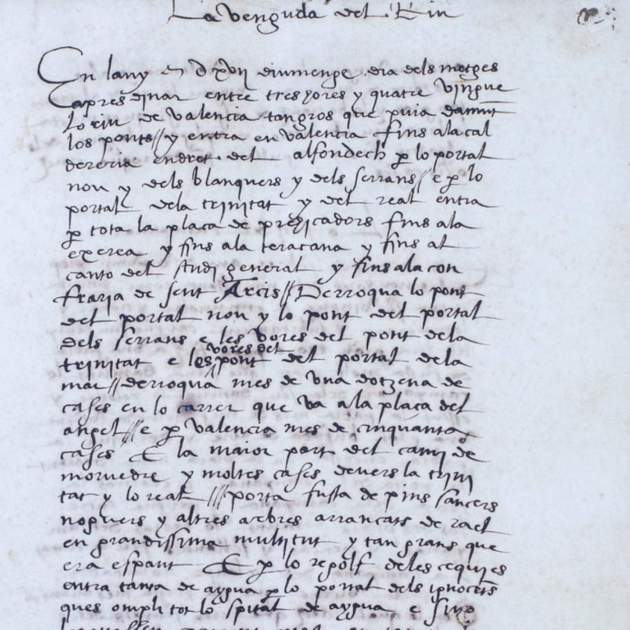 La venguda del Riu
En lany m d xvii diumenge dia dels metges
apres dinar entre tres hores y quatre vingue
lo riu de valencia tan gros que puia damunt
los ponts // y entra en valencia fins ala cal
dereria endret del alfondech p lo portal
nou y dels blanquers y dels serrans // e p lo
portal dela trinitat y del real entra
p tota la placa de prehicadors fins ala
exerea y fins ala teracana y fins al
canto del studi general y fins ala con
fraria de sent Arcis // Derroqua lo pont
del portal nou y lo pont del portal
dels serrans e les vores del pont dela
trinitat e les vores del pont del portal dela
mar // derroqua mes de una dotzena de
cases en lo carrer que va ala placa del
angel // e p valencia mes de cinquanta
cases E la maior part del cami de
morvedre y moltes cases devers la trini
tat y lo real /// porta fusta de pins sancers
noguers y altres arbres arrancats de rael
en grandissima multitut y tan grans que
era espant E p lo regolf deles cequies
entra tanta de aygua p lo portal dels ignocents
ques ompli tot lo spital de aygua e si no